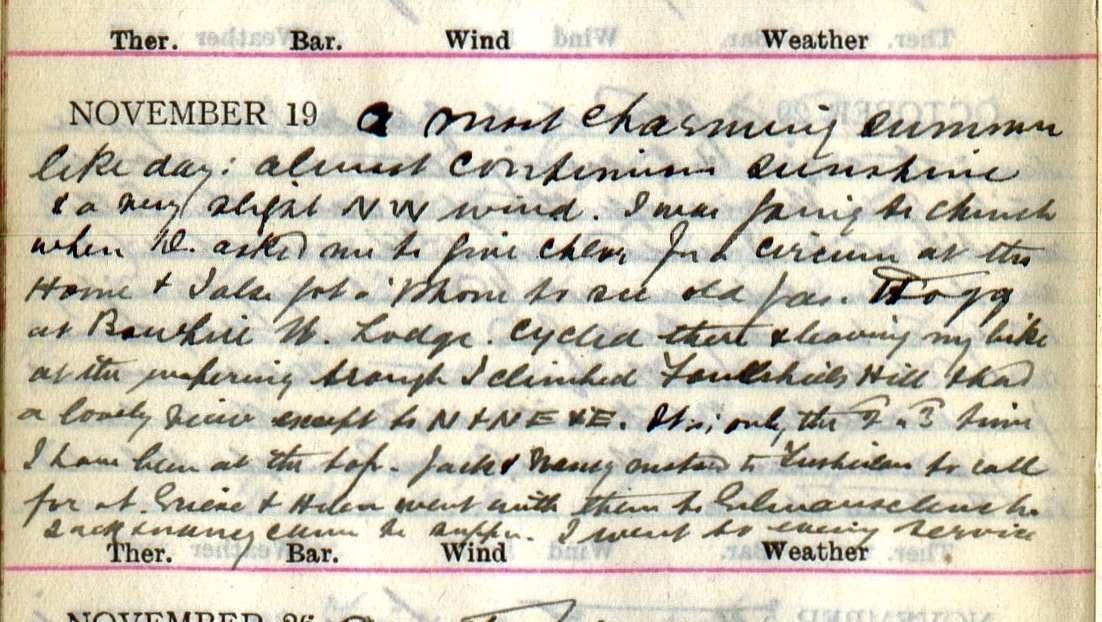 Ther. Bar. Wind Weather
NOVEMBER 19 a most charming summer
like day: almost continuous sunshine
& a very slight NW wind. I was going to church
when D. asked me to give chlor for a circum at the
Home & I also got a 'phone to see old Jas. Hogg
at Bowhill W. Lodge. Cycled there & leaving my bike
at the watering trough I climbed Foulshiels Hill & had
a lovely view except to N & NE & E. It is only the 2 or 3 time
I have been at the top. Jack & Nancy motored to to call
for at. & Helen went with them to Gilmanscleuch.
Jack & Nancy came to supper. I went to evening service
Ther. Bar. Wind Weather
NOVEMBER 26